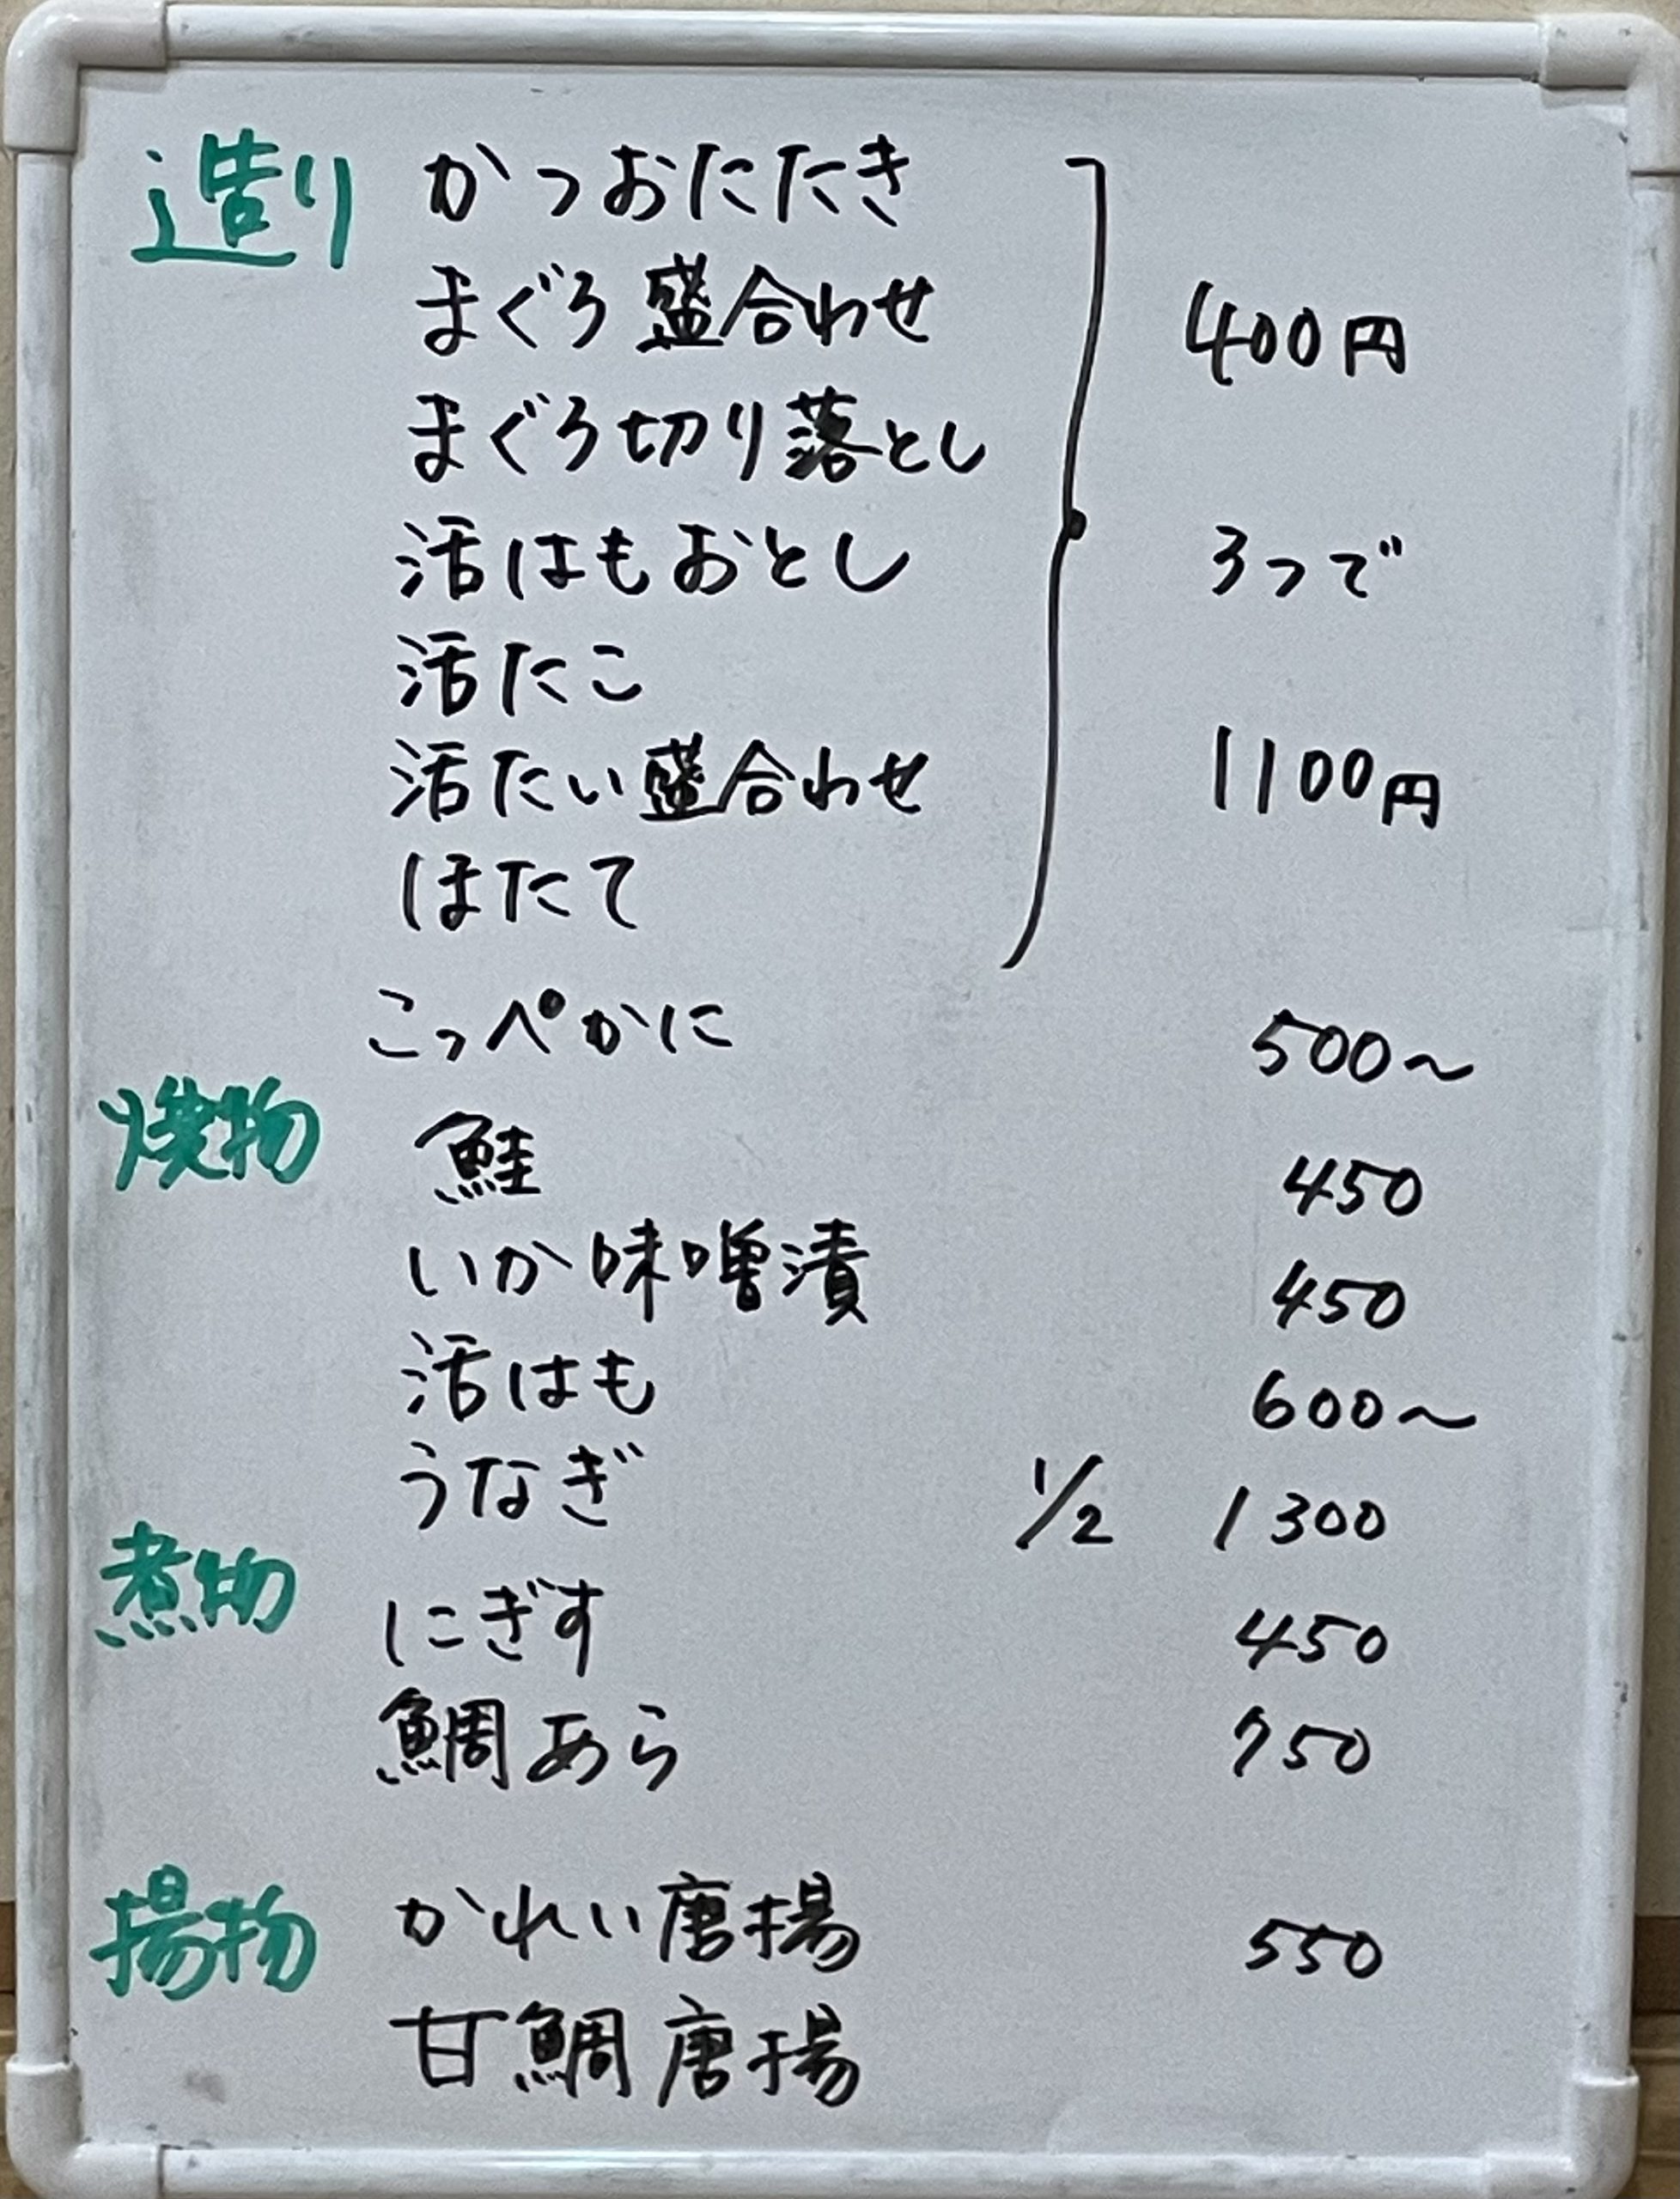 造り かつおたたき
まぐろ盛合わせ 400円
まぐろ切り落とし
活はもおとし 3つで
活たこ
活たい盛合わせ 1100円
ほたて
こっぺかに 500～
焼物 鮭 450
いか味噌漬 450
活はも 600～
うなぎ 1/2 1300
煮物 にぎす 450
鯛あら 750
揚物 かれい唐揚 550
甘鯛唐揚